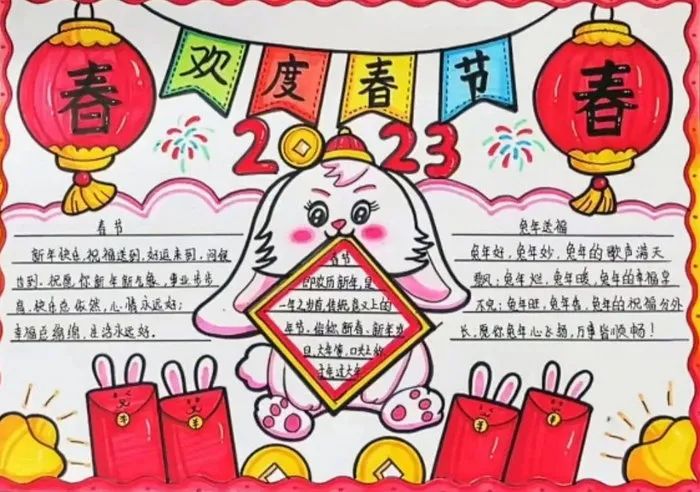 欢度春节
春
春
2023
春节
新年快乐,祝福送到,好运来到,问候
告到,祝愿你新年新气象,事业步步
高,快乐总依然,心情永远好;
幸福总绵绵,生活永远好。
春节
即农历新年,是
一年之岁首,传统意义上的
年节。俗称新春、新年、岁
旦、大年等,口头上
过年过大年
兔年送福
兔年好,兔年妙,兔年的歌声满天
飘;兔年
兔年旺,兔年
兔年的祝福分外
长,愿你兔年心飞扬,万事皆顺畅!